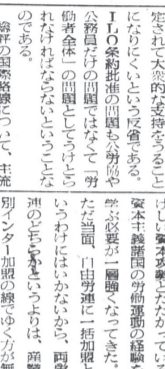 定された大衆的な支持をうること
になりにくいという反省である。
ILO条約批准の問題も公労協や
公務員だけの問題ではなくて「労
働者全体」の問題としてうけとら
れなければならないということな
のである。
総評の国際路線について、主流
資本主義諸国の労働運動の経験を
学ぶ必要が一層強くなってきた。
ただ当面、自由労連に一括加盟と
いうわけにはいかないから、両労
連のどちらというよりは、産業
別インター加盟の線でゆく方が無